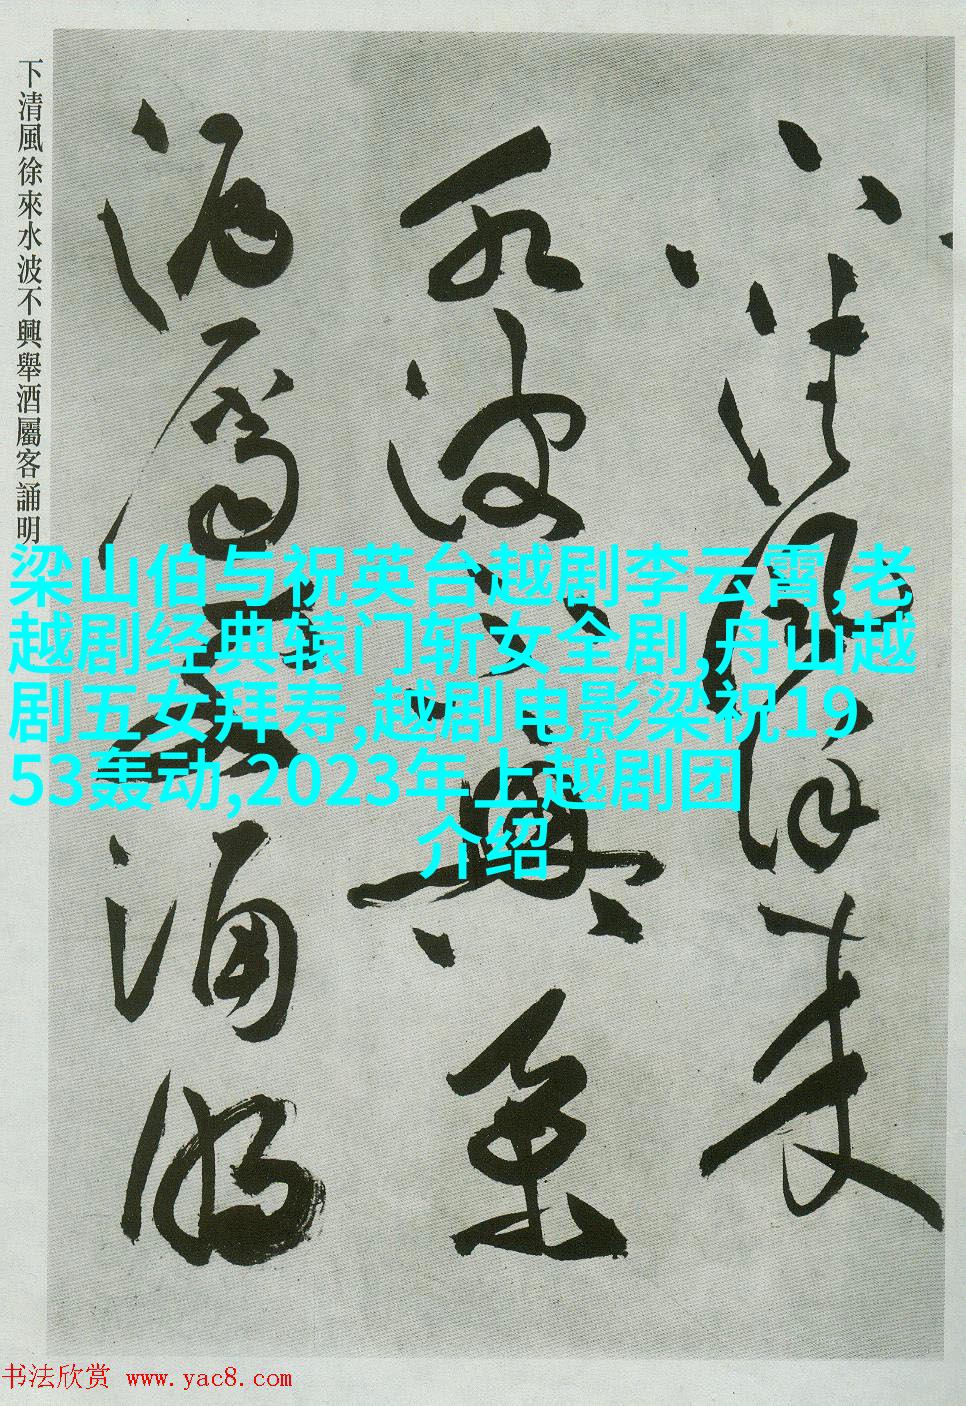 下清風徐來
水波不興舉
酒屬客誦明
下清風徐來水波不興舉酒屬客誦明
梁山伯与祝英台越剧李云霄,老
越剧经典辕门斩女全剧,舟山越
剧五女拜寿,越剧电影梁祝19
53轰动,2023年上越剧团
介绍
书法欣赏 www.yac8.com